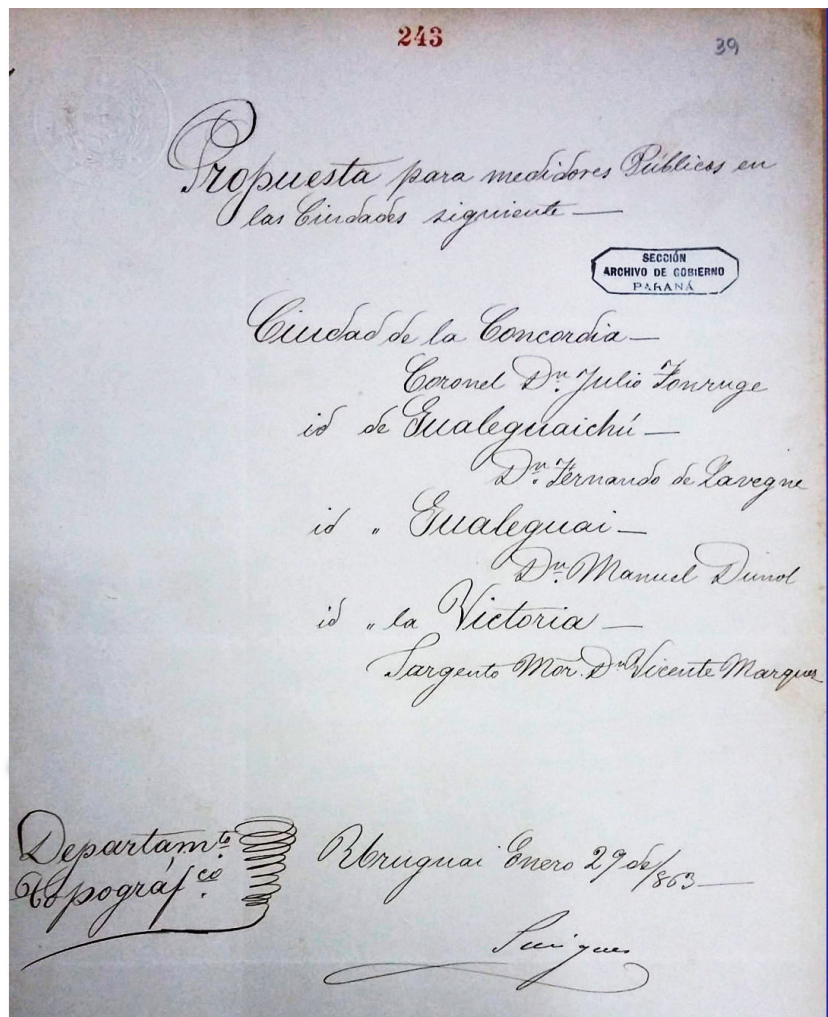 243
39
Propuesta para medidores Públicos en
las Ciudades siguiente —
SECCIÓN
ARCHIVO DE GOBIERNO
PARANÁ
Ciudad de la Concordia —
Coronel Dn. Julio Fonruge
id de Gualeguaichú —
Dn. Fernando de Lavegne
id " Gualeguai —
Dn. Manuel Dunol
id " la Victoria —
Sargento Mor. Dn Vicente Marquez
Departamto.
Topográfco.
Uruguai Enero 29 de /863 —